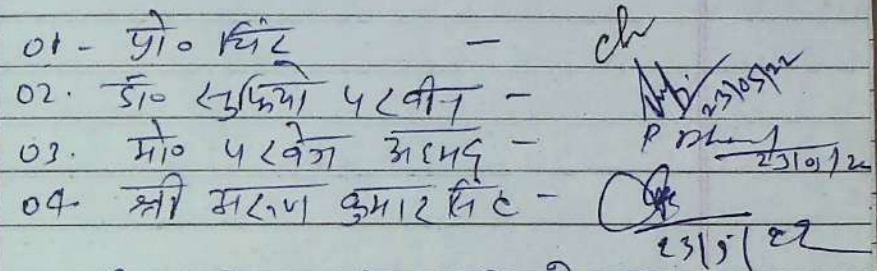 01- प्रो० सिंह -
02. डॉ० सुफिया परवीन - 23/05/22
03. मो० परवेज अहमद - 23/05/22
04- श्री अरूण कुमार सिंह - 23/5/22